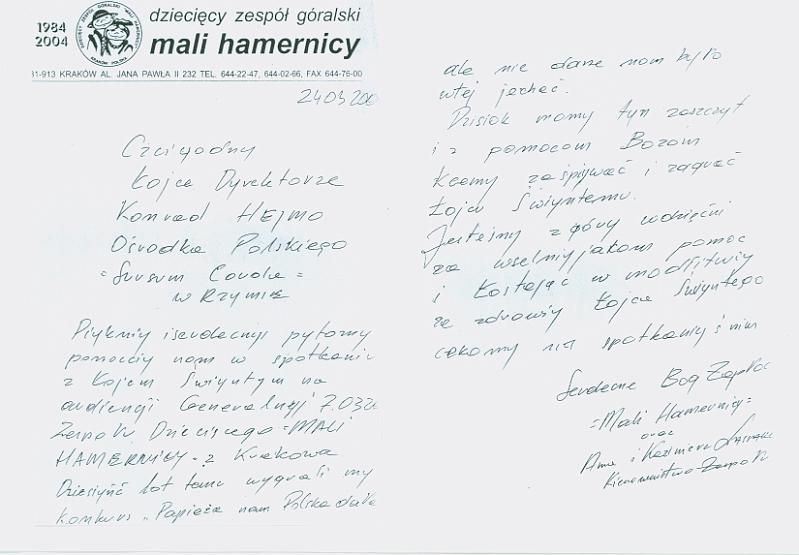 1984
2004
DZIECIĘCY ZESPÓŁ GÓRALSKI "MALI HAMERNICY"
KRAKÓW POLSKA
dziecięcy zespół góralski
mali hamernicy
31-913 KRAKÓW AL. JANA PAWŁA II 232 TEL. 644-22-47, 644-02-66, FAX 644-76-00
24.03.200
Czcigodny
Łojce Dyrektorze
Konrad HEJMO
Ośrodka Polskiego
"Sursum Corda"
w Rzymie
Piykniy i serdecnyj pytomy
pomocciy nom w spotkaniu
z Łojcem Świyntym na
audiencji Generalnyj 7.03.2
Zespołu Dziecięcego "MALI
HAMERNICY" z Krakowa
Dziesiyńć lot temu wygrali my
konkurs "Papieża nam Polska dała
ale nie dane nom było
wtej jechać.
Dzisiok momy tyn zaszczyt
i z pomocom Bozom
kcemy zaśpiywać i zagrać
Łojcu Świyntemu.
Jesteśmy z góry wdzięcni
za wselniyjakom pomoc
i łostając w modlitwiy
ło zdrowiy Łojca Świyntego
cekomy na spotkaniy s nim
Serdecne Bóg Zapłać
"Mali Hamernicy"
oraz
Anna i Kazimierz
Kierownictwo Zespołu